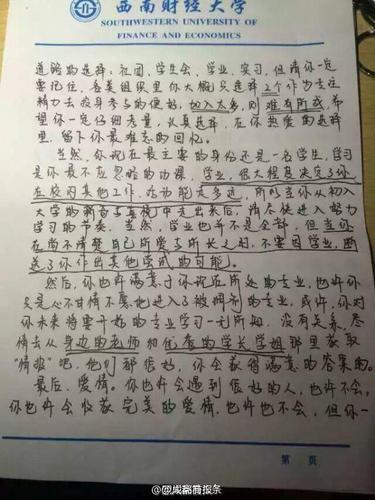 西南财经大学
SOUTHWESTERN UNIVERSITY OF
FINANCE AND ECONOMICS
道路的选择：社团、学生会、学业、实习，但请你一定
要记住，各类组织里你大概只选择2个作为专注
精力去投身其多的便好，加入太多，则难有所成，希
望你一定仔细考量，认真选择，在你热爱的选择
里，留下你最难忘的回忆。
当然，你现在最主要的身份还是一名学生，学习
是你最不应忽略的功课，学业，很大程度决定了你
在校内其他工作、活动能走多远，所以当你从初入
大学的新奇与喜悦中走出来后，请尽快进入努力
学习的节奏。当然，学业也并不是全部，但当你
在尚不清楚自己所爱与所长之时，不要因学业，断
送了你作出其他尝试的可能。
然后，你也许满意于你现在所处的专业，也许你
只是心不甘情不愿地进入了被调剂的专业，或许，你对
你未来将要开始的专业学习一无所知，没有关系，尽
情去从身边的老师和优秀的学长学姐那里获取
“情报”吧，他们都很好，你会获得满意的答案的。
最后，爱情。你也许会遇到很好的人，也许不会，
你也许会收获完美的爱情，也许也不会，但你一
第 页